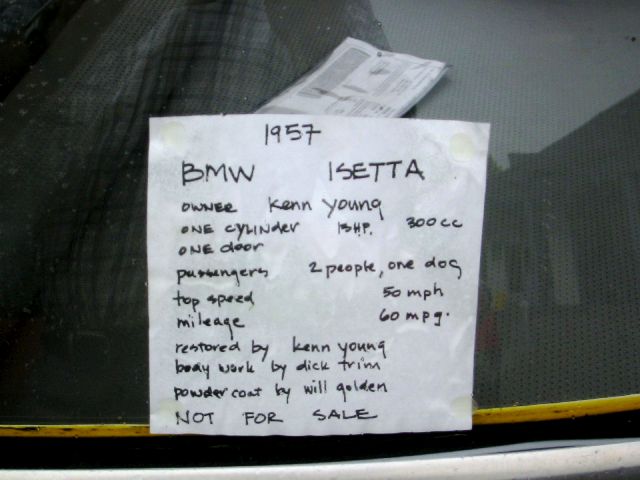 1957
BMW ISETTA
OWNER Kenn Young
ONE CYLINDER 13 H.P. 300cc
ONE door
passengers 2 people, one dog
top speed 50 mph
mileage 60 mpg.
restored by kenn young
body work by dick trim
powder coat by will golden
NOT FOR SALE